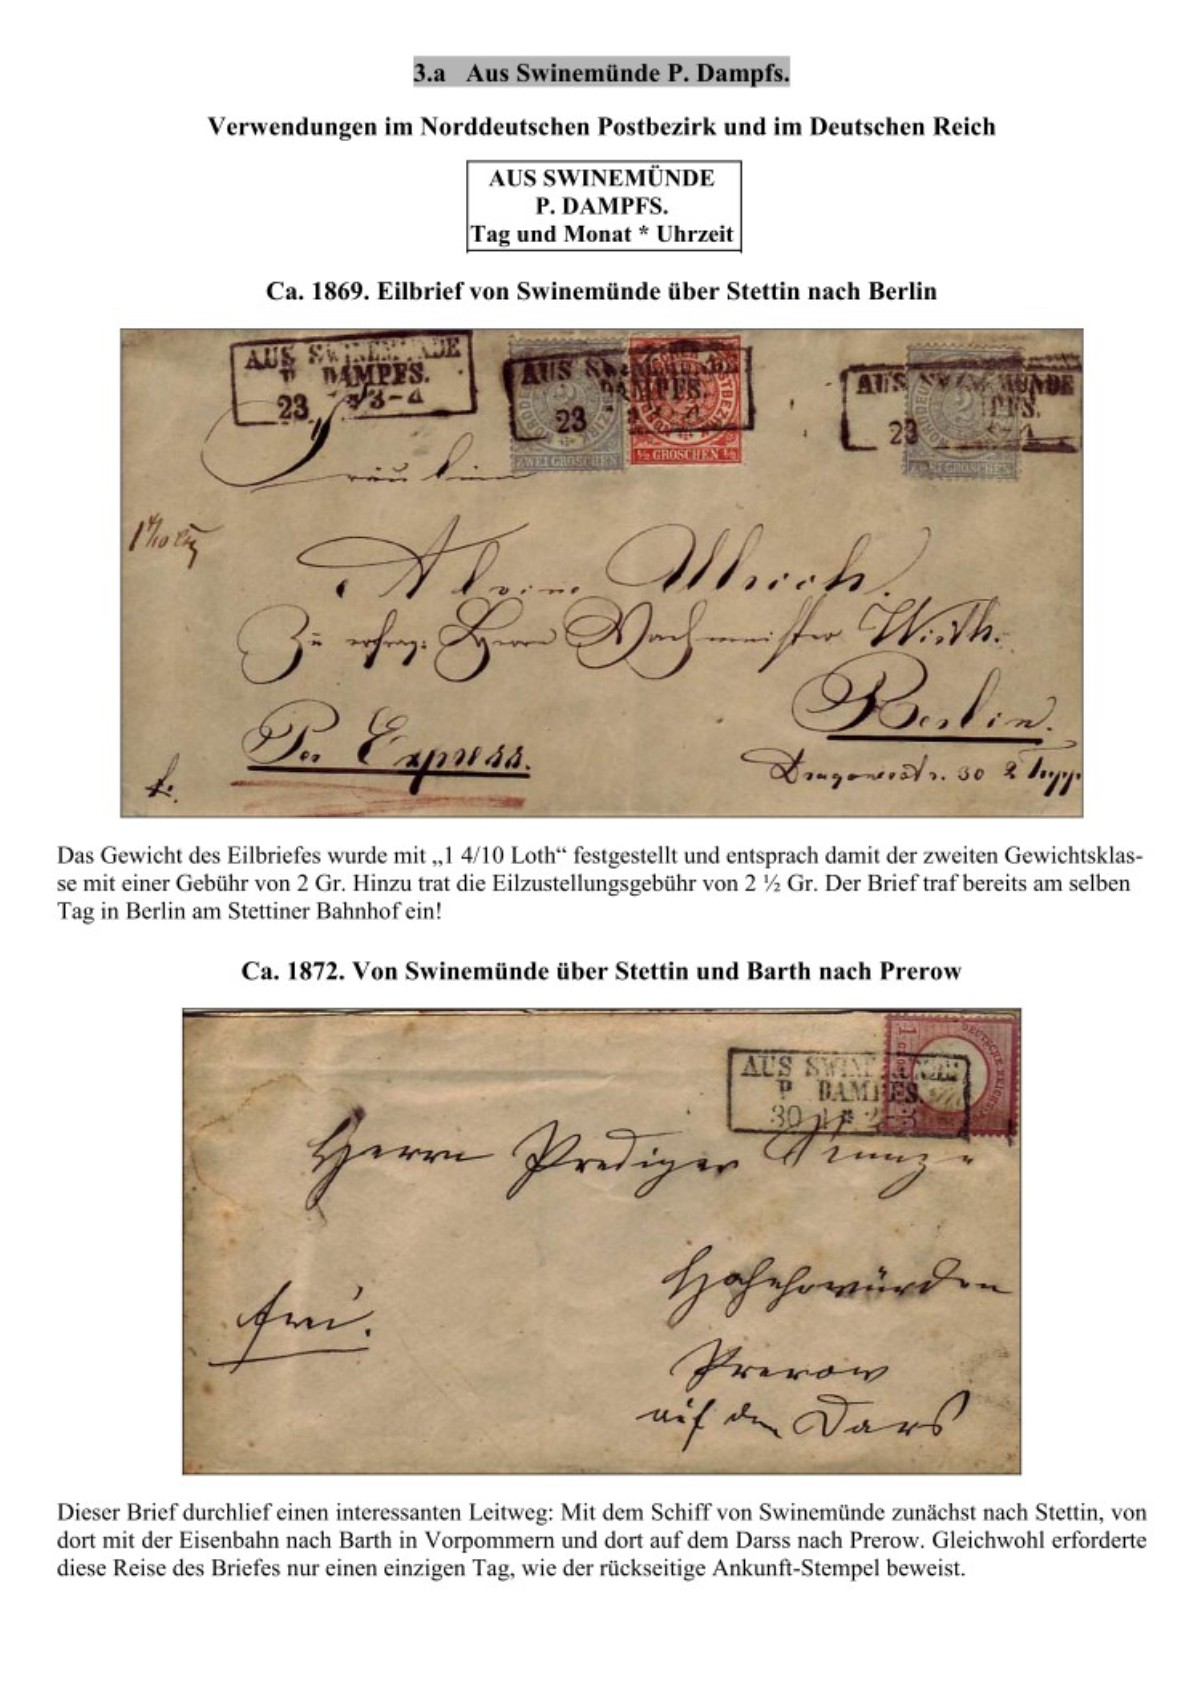 3.a Aus Swinemünde P. Dampfs.
Verwendungen im Norddeutschen Postbezirk und im Deutschen Reich
AUS SWINEMÜNDE
P. DAMPFS.
Tag und Monat * Uhrzeit
Ca. 1869. Eilbrief von Swinemünde über Stettin nach Berlin
AUS SWINEMÜNDE
P. DAMPFS.
23 3-4
AUS SWINEMÜNDE
DAMPFS.
23
ZWEI GROSCHEN
½ GROSCHEN ½
AUS SWINEMÜNDE
PFS.
23
ZWEI GROSCHEN
Fräulein
1 4/10 Lth
Alvine Ullrich.
Zu erfrag: Herrn Wachmeister Wirth.
Berlin.
Per Express.
Dragonerstr. 30 2 Trpp.
fr.
Das Gewicht des Eilbriefes wurde mit „1 4/10 Loth“ festgestellt und entsprach damit der zweiten Gewichtsklas-
se mit einer Gebühr von 2 Gr. Hinzu trat die Eilzustellungsgebühr von 2 ½ Gr. Der Brief traf bereits am selben
Tag in Berlin am Stettiner Bahnhof ein!
Ca. 1872. Von Swinemünde über Stettin und Barth nach Prerow
AUS SWINEMÜNDE
P. DAMPFS.
30 * 2
Herrn Prediger
Hochehrwürden
frei.
Prerow
auf dem Dars
Dieser Brief durchlief einen interessanten Leitweg: Mit dem Schiff von Swinemünde zunächst nach Stettin, von
dort mit der Eisenbahn nach Barth in Vorpommern und dort auf dem Darss nach Prerow. Gleichwohl erforderte
diese Reise des Briefes nur einen einzigen Tag, wie der rückseitige Ankunft-Stempel beweist.